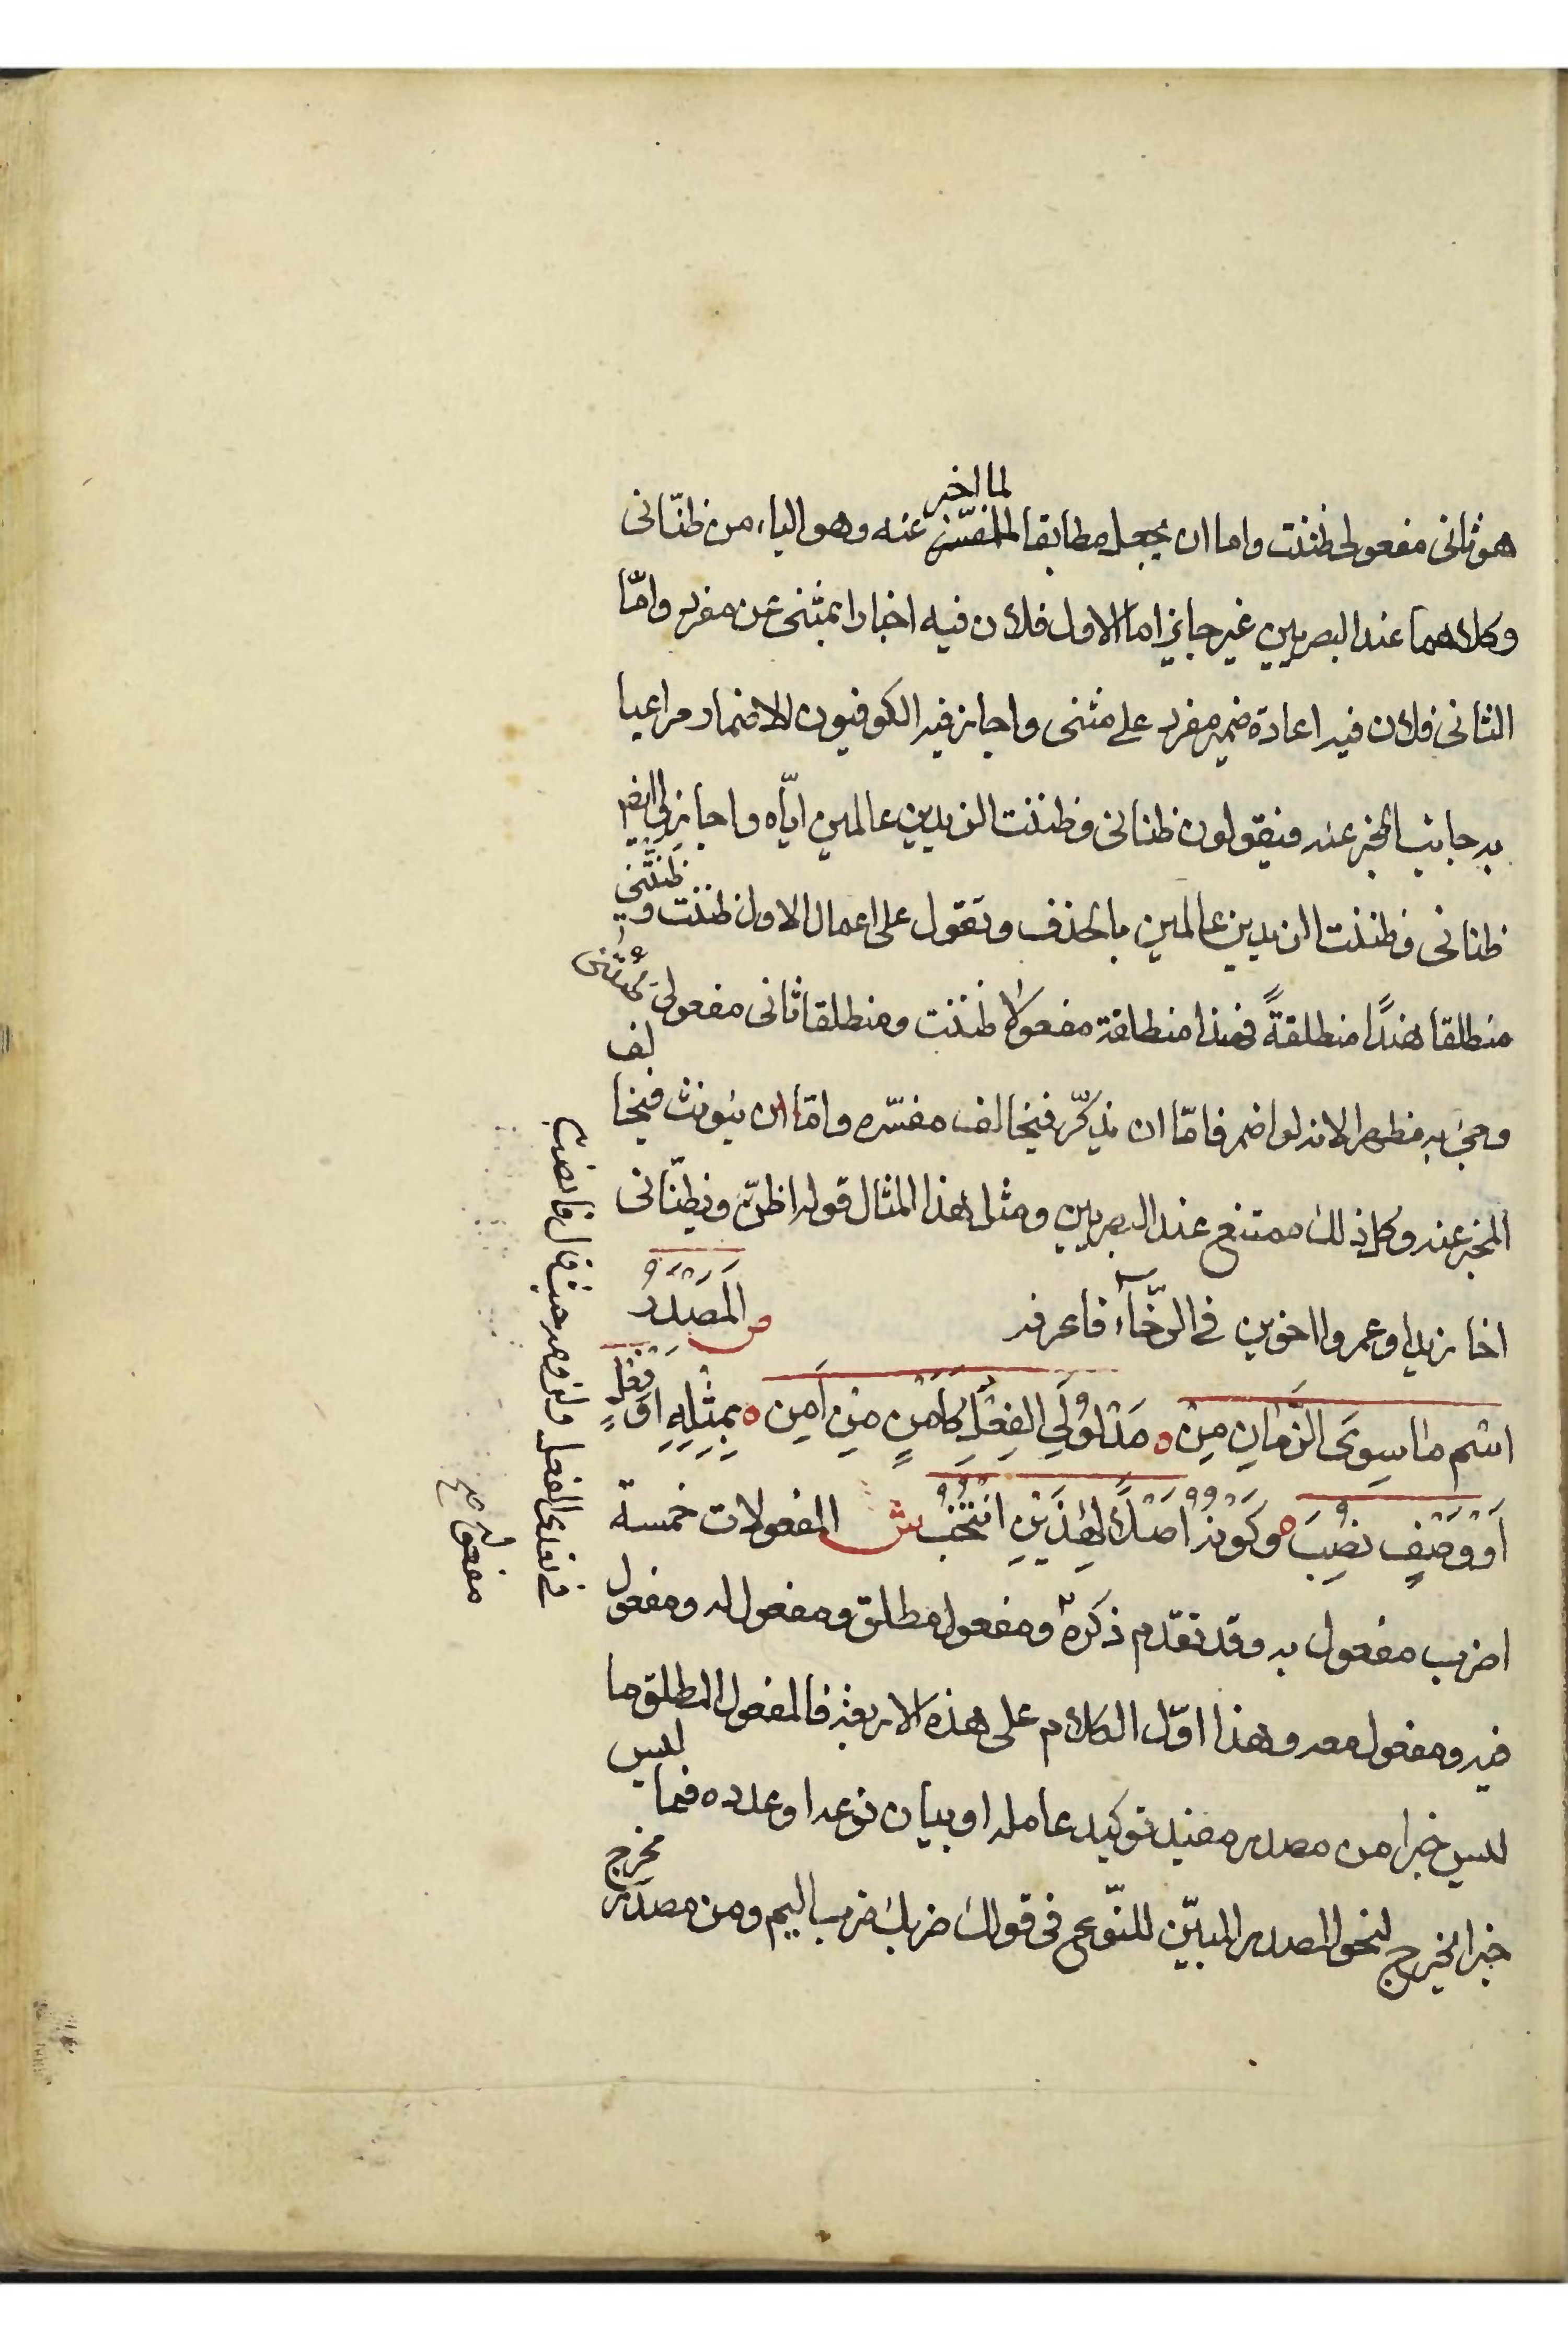 لما اخبر
هو ثانى مفعولى ظننت واما ان يجعل مطابقا للمفسر عنه وهو الياء من ظنّانى
وكلاهما عند البصريين غير جايز اما الاول فلان فيه اخبارا بمثنى عن مفرد وامّا
الثانى فلان فيه اعادة ضمير مفرد على مثنى واجاز فيه الكوفيون الاضمار مراعيا
به جانب المخبر عنه فيقولون ظنانى وظننت الزيدين عالمين ايّاه واجازوا ايضا
ظنانى وظننت الزيدين عالمين بالحذف وتقول على اعمال الاول ظننت وظنتنى
منطلقا هندًا منطلقةً فهندا منطلقة مفعولا ظننت ومنطلقا ثانى مفعولى ظنتنى
وجئ به مظهرا لانه لو اضمر فامّا ان يذكّر فيخالف مفسّره وامّا ان يؤنث فيخالف
المخبر عنه وكل ذلك ممتنع عند البصريين ومثل هذا المثال قوله اظنّ ويظنّانى
اخا زيدا وعمروا اخوين فى الرّخآء فاعرفه ص المَصْدَرُ
اسْم ما سِوَى الزَّمانِ مِنْ ه مَدْلُولَيِ الفِعْلِ كَأَمْنٍ مِنْ اَمِن ه بِمِثْلِهِ اَوْ فِعْلٍ
اَوْ وَصْفٍ نُصِبَ ه وَكَوْنُهُ اَصْلًا لِهٰذَيْنِ انْتُخِبْ ش المفعولات خمسة
اضرب مفعول به وقد تقدم ذكره ومفعول مطلق ومفعول له ومفعول
فيه ومفعول معه وهذا اوّل الكلام على هذه الاربعة فالمفعول المطلق ما
ليس خبرا من مصدر مفيد توكيد عامله او بيان نوعه او عدده فما ليس
خبرا مخرج لنحو المصدر المبيّن للنّوع فى قولك ضربك ضرب اليم ومن مصدر مخرج
فى تعدى الفعل ولزومه حيث قال فانصب به
مفعوله صح